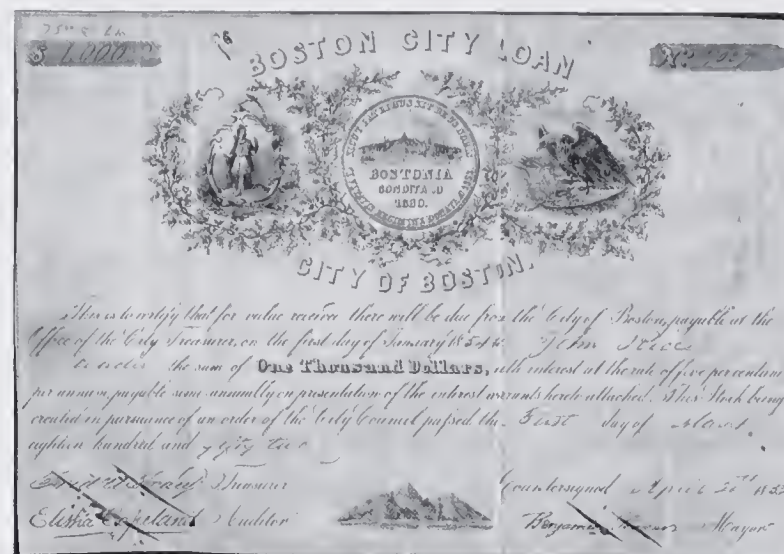 $ 1,000
No.
BOSTON CITY LOAN
SICUT PATRIBUS SIT DEUS NOBIS
BOSTONIA
CONDITA A.D
1630.
CIVITATIS REGIMINE DONATA A.D. 1822
CITY OF BOSTON.
This is to certify that for value receive there will be due from the City of Boston, payable at the
Office of the City Treasurer, on the first day of January 1854 to John
or order the sum of One Thousand Dollars, with interest at the rate of five per centum
per annum, payable semi-annually on presentation of the interest warrants hereto attached. This Stock being
created in pursuance of an order of the City Council passed the First day of
eighteen hundred and
Treasurer Countersigned April 185
Elisha Copeland Auditor Benjamin Mayor